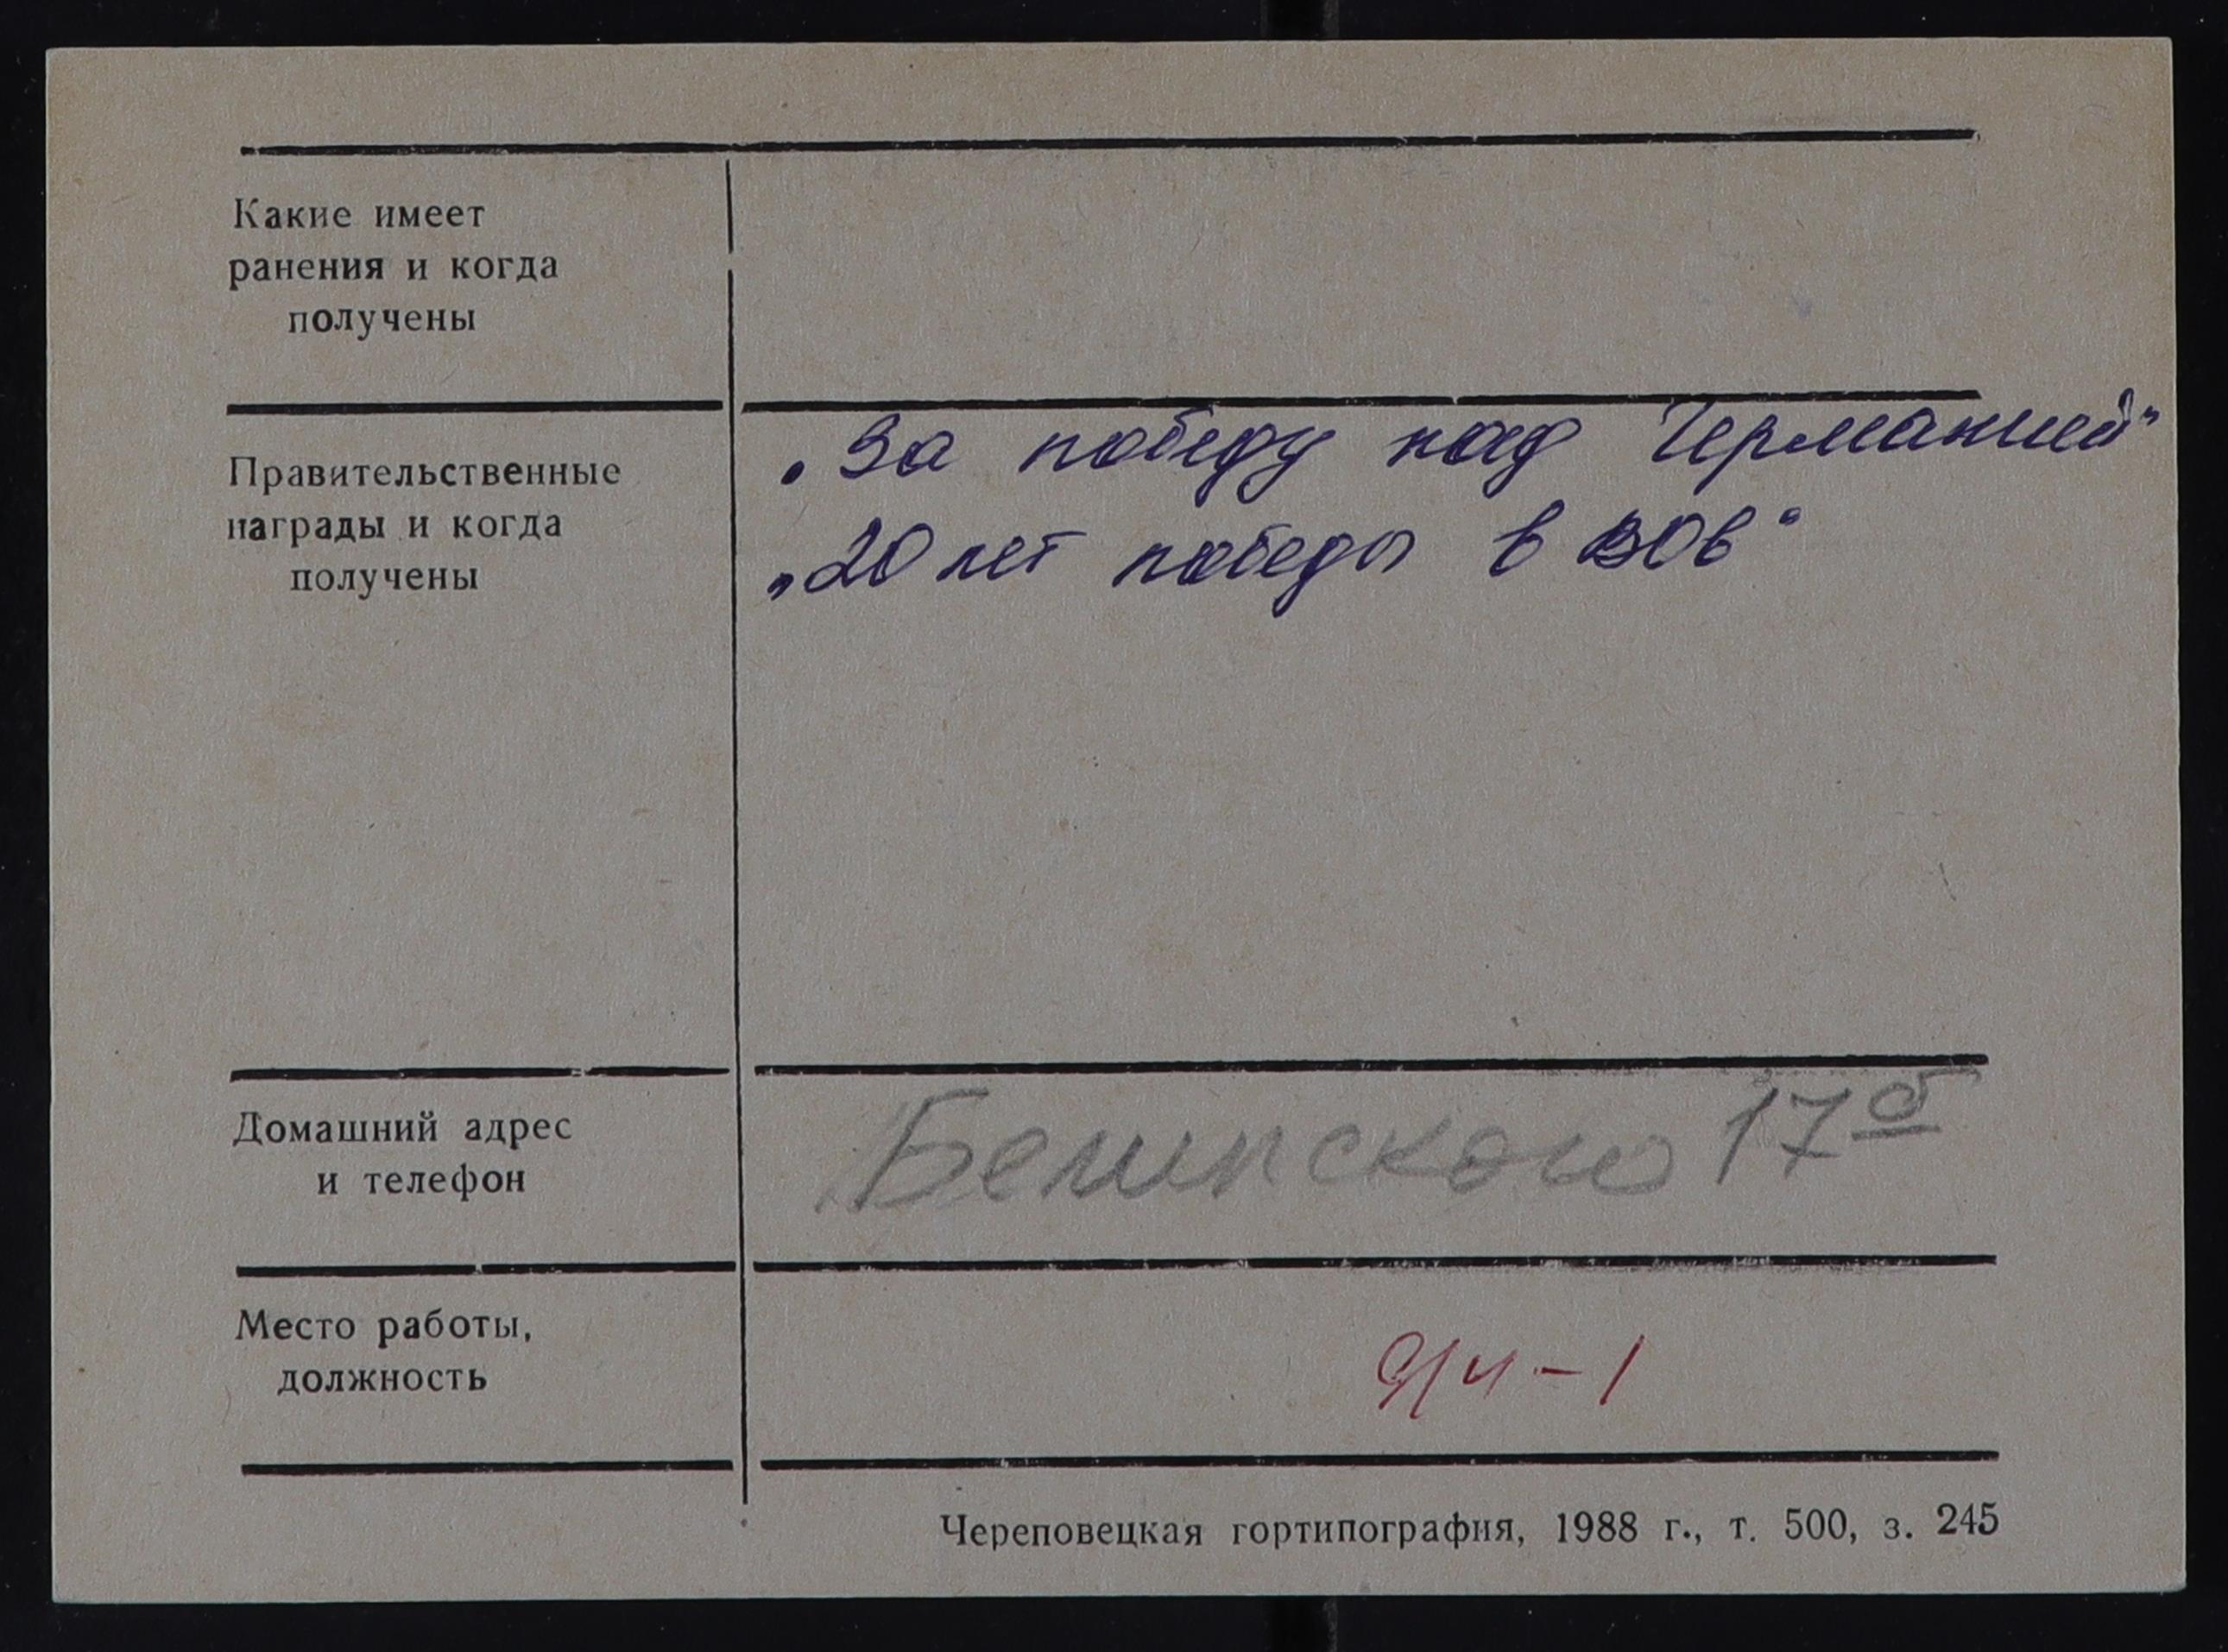 Какие имеет
ранения и когда
получены
Правительственные
награды и когда
получены
„За победу над Германией"
„20 лет победы в ВОв"
Домашний адрес
и телефон
Белинского 17б
Место работы,
должность
Череповецкая гортипография, 1988 г., т. 500, з. 245